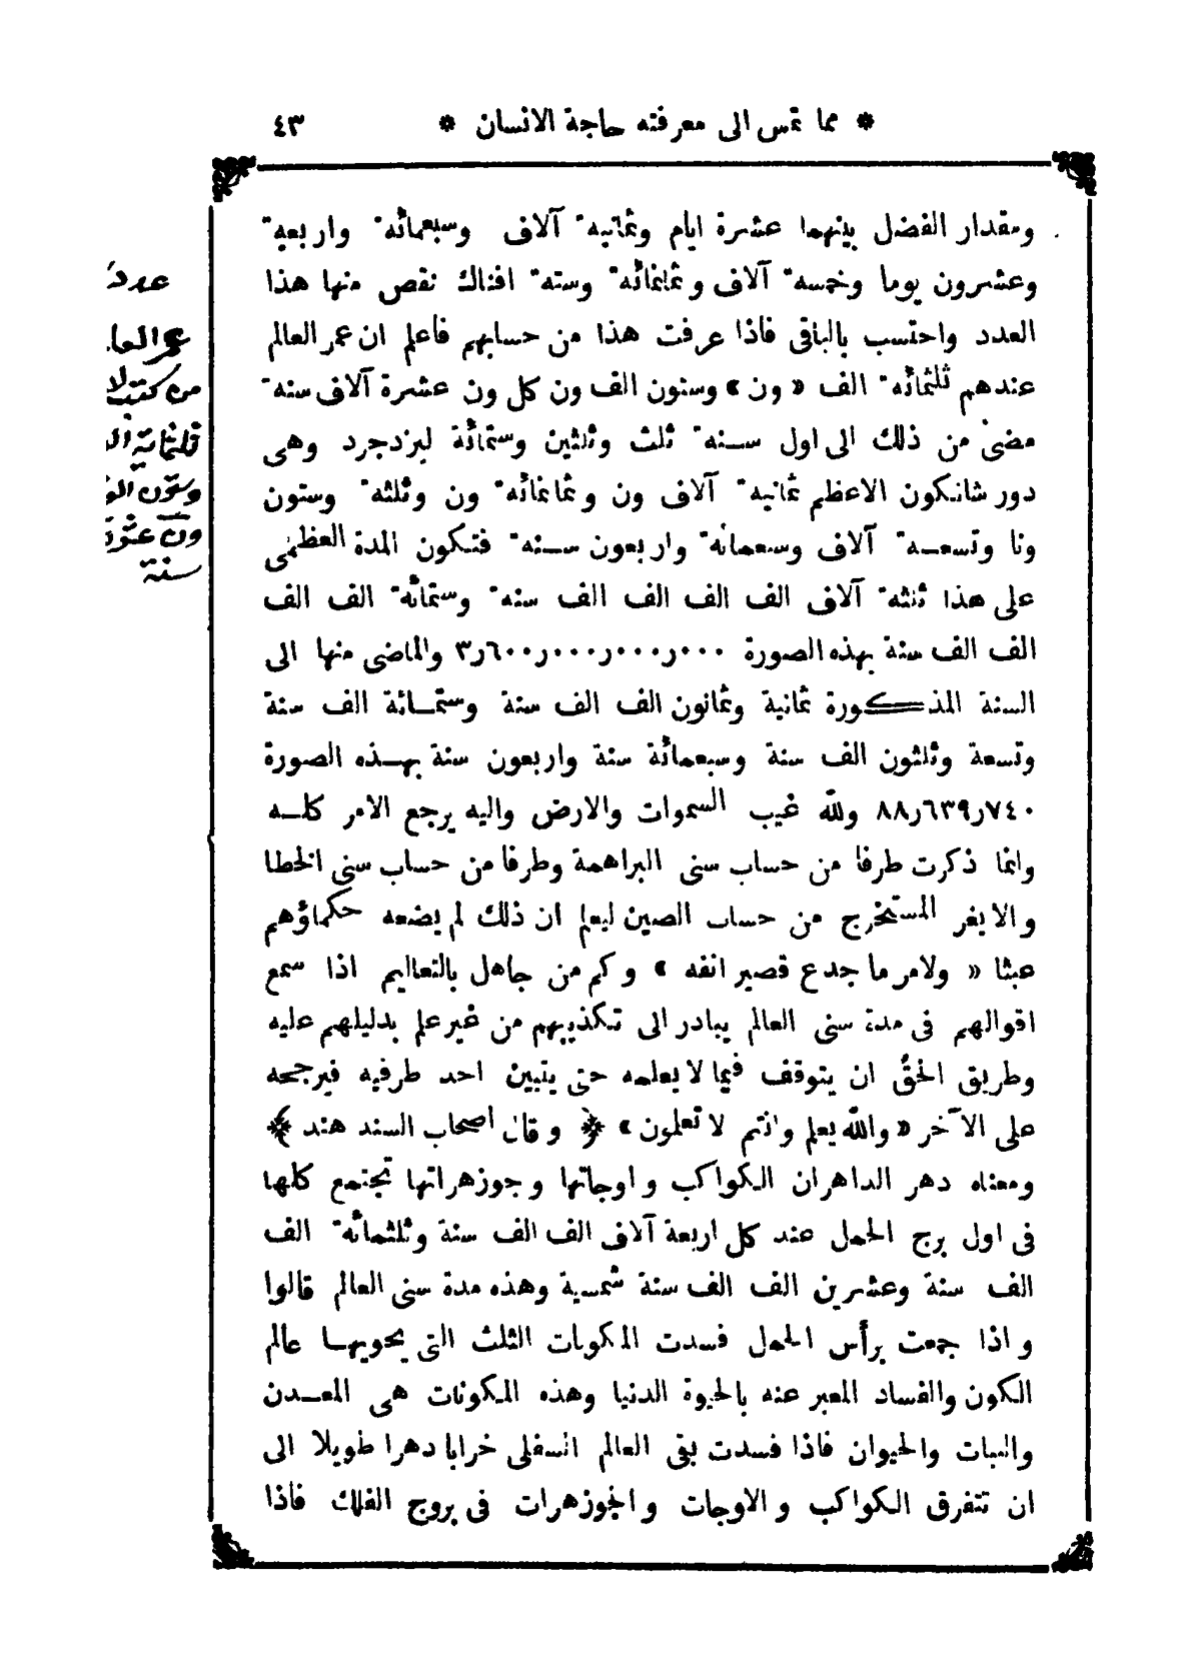 * مما تمس الى معرفته حاجة الانسان * ٤٣
ومقدار الفضل بينهما عشرة ايام وثمانيه آلاف وسبعمائه واربعه
وعشرون يوما وخمسه آلاف وثمانمائه وسته افناك نقص منها هذا
العدد واحتسب بالباقى فاذا عرفت هذا من حسابهم فاعلم ان عمر العالم
عندهم ثلثمائه الف « ون » وستون الف ون كل ون عشرة آلاف سنه
مضى من ذلك الى اول سنه ثلث وثلثين وستمائة ليزدجرد وهى
دور شانكون الاعظم ثمانيه آلاف ون وثمانمائه ون وثلثه وستون
ونا وتسعه آلاف وسبعمائه واربعون سنه فتكون المدة العظمى
على هذا ثلثه آلاف الف الف الف الف سنه وستمائه الف الف
الف الف سنة بهذه الصورة ٣٫٦٠٠٫٠٠٠٫٠٠٠٫٠٠٠ والماضى منها الى
السنة المذكورة ثمانية وثمانون الف الف سنة وستمائة الف سنة
وتسعة وثلثون الف سنة وسبعمائة سنة واربعون سنة بهذه الصورة
٨٨٫٦٣٩٫٧٤٠ ولله غيب السموات والارض واليه يرجع الامر كله
وانما ذكرت طرفا من حساب سنى البراهمة وطرفا من حساب سنى الخطا
والايغر المستخرج من حساب الصين ليعلم ان ذلك لم يضعه حكماؤهم
عبثا « ولامر ما جدع قصير انفه » وكم من جاهل بالتعاليم اذا سمع
اقوالهم فى مدة سنى العالم يبادر الى تكذيبهم من غير علم بدليلهم عليه
وطريق الحق ان يتوقف فيما لا يعلمه حتى يتبين احد طرفيه فيرجحه
على الآخر « والله يعلم وانتم لا تعلمون » ﴿ وقال اصحاب السند هند ﴾
ومعناه دهر الداهران الكواكب واوجاتها وجوزهراتها تجتمع كلها
فى اول برج الحمل عند كل اربعة آلاف الف الف سنة وثلثمائه الف
الف سنة وعشرين الف الف سنة شمسية وهذه مدة سنى العالم قالوا
واذا جمعت برأس الحمل فسدت المكونات الثلث التى يحويها عالم
الكون والفساد المعبر عنه بالحيوة الدنيا وهذه المكونات هى المعدن
والنبات والحيوان فاذا فسدت بقى العالم السفلى خرابا دهرا طويلا الى
ان تتفرق الكواكب والاوجات والجوزهرات فى بروج الفلك فاذا
عدد
عمر العا
من كتب لا
ثلثماية ال
وستون الف
ون عشرة
سنة